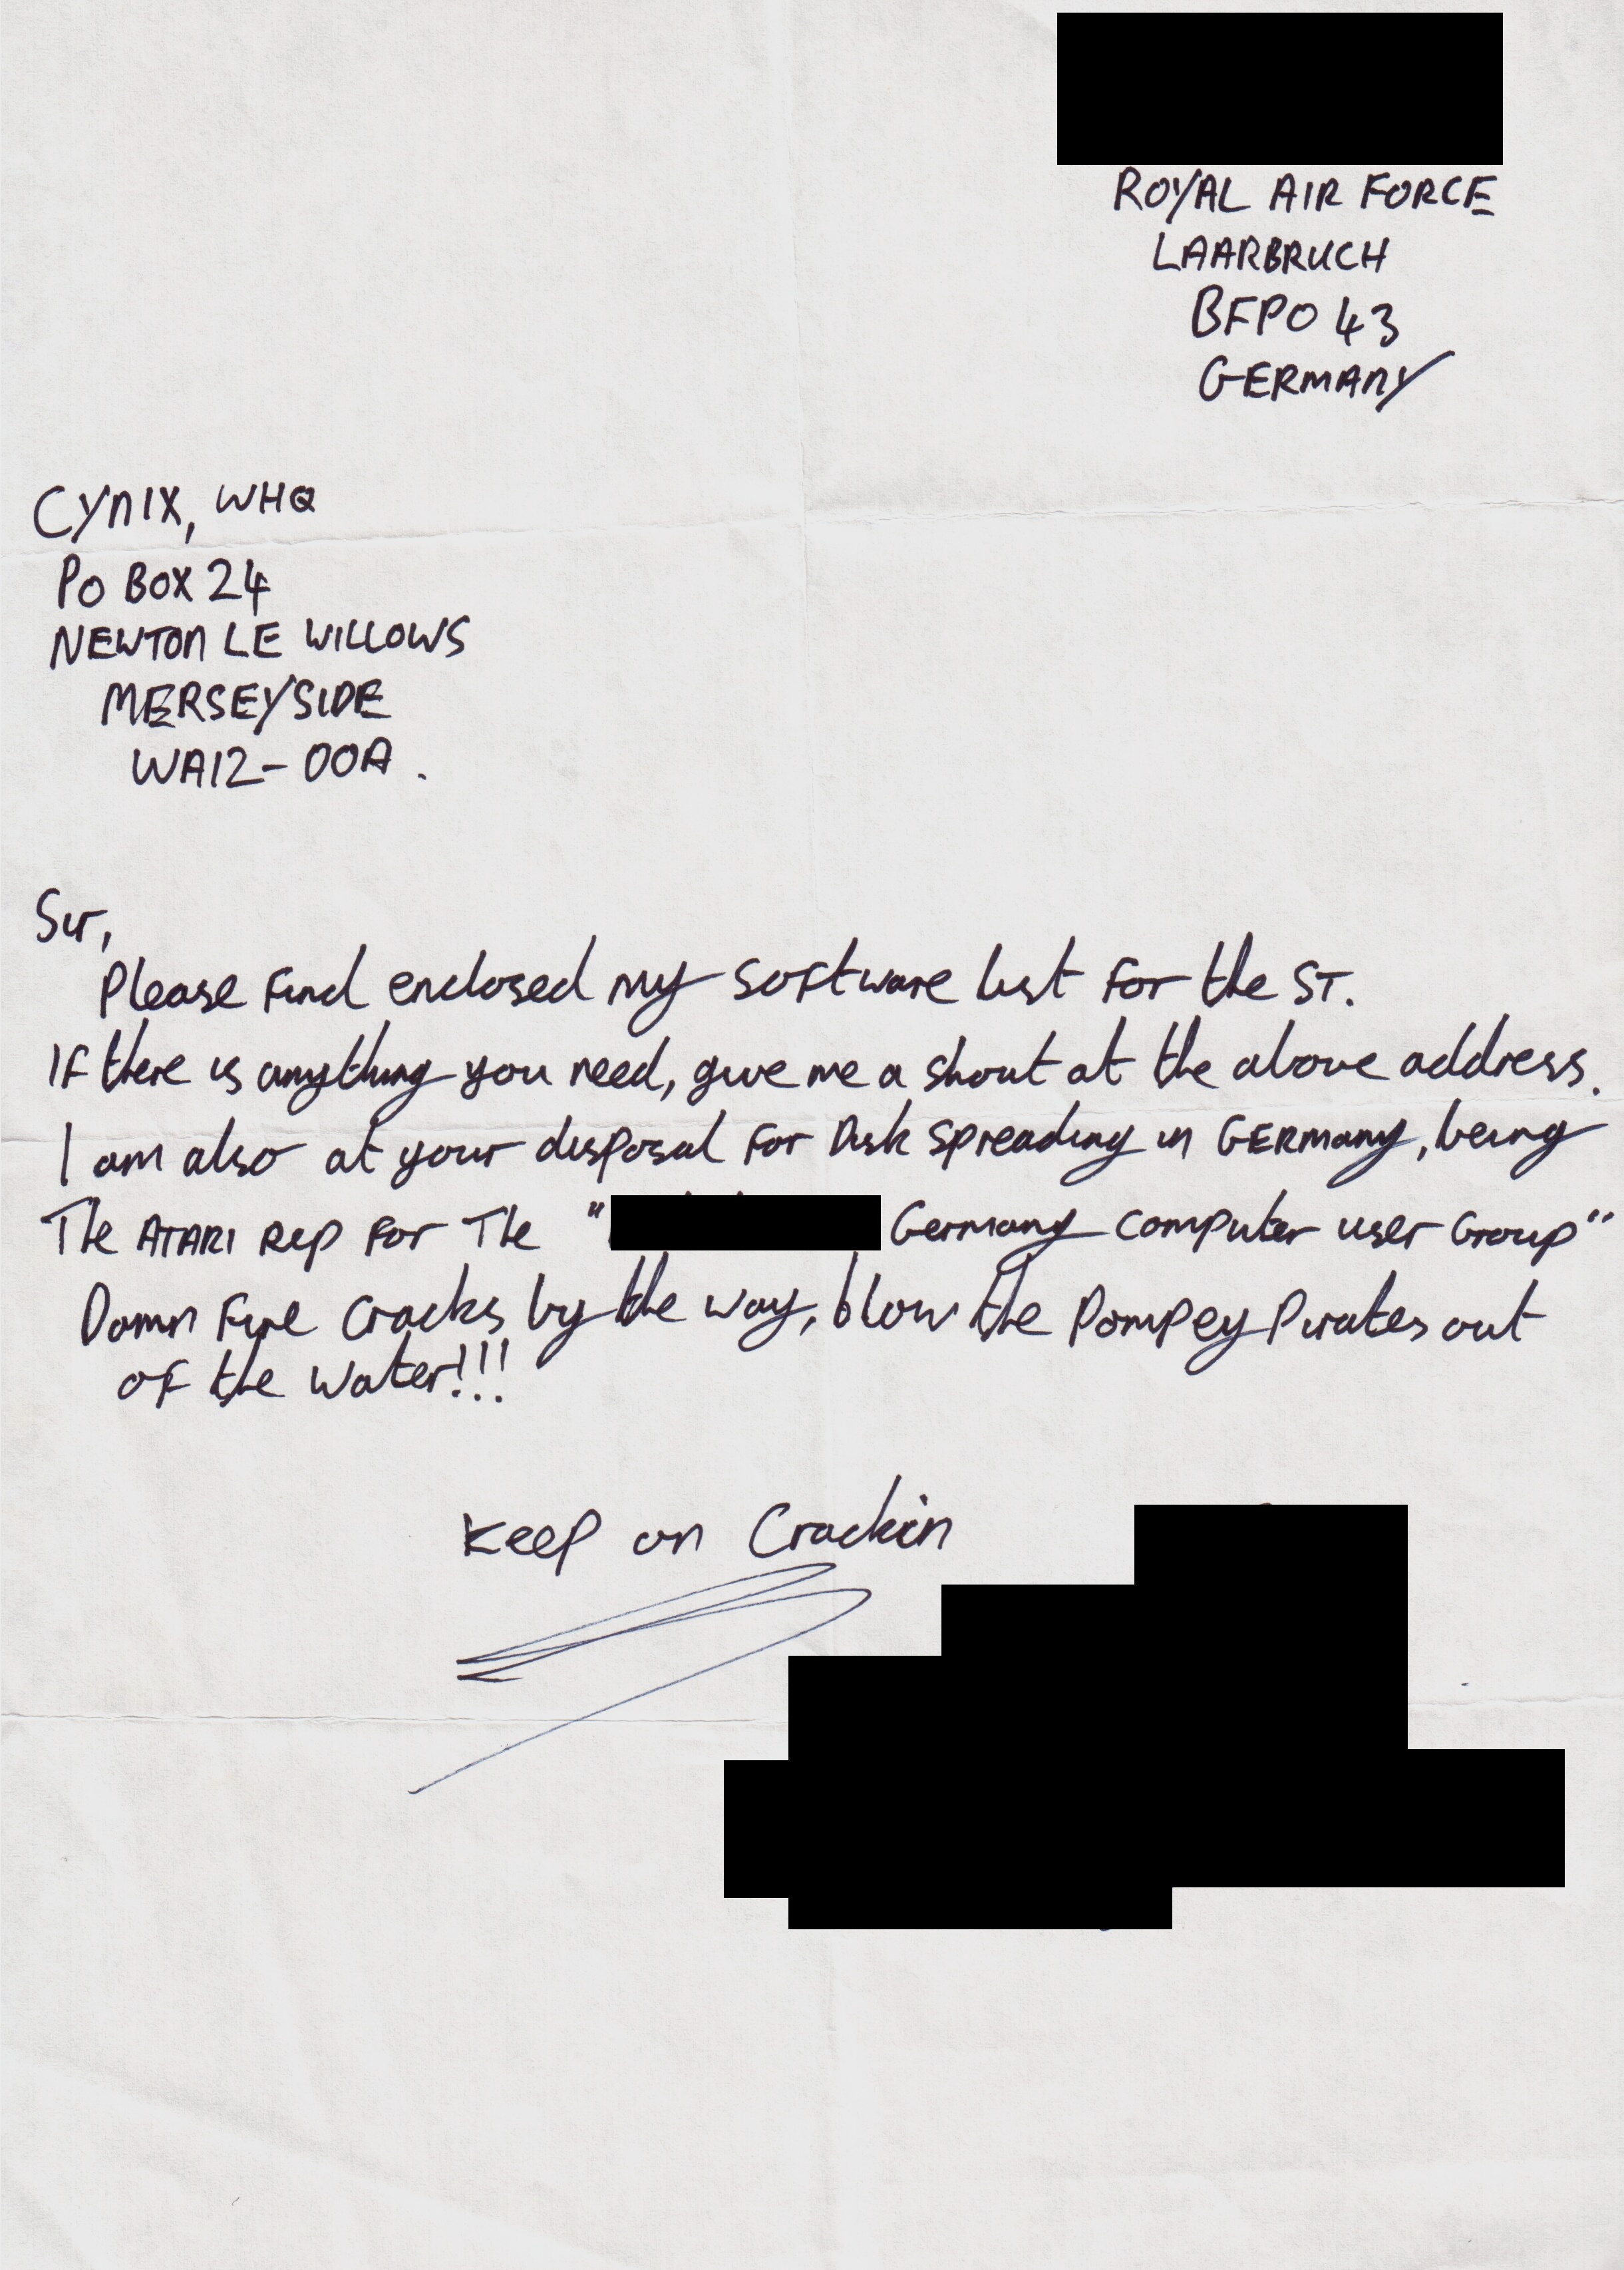 ROYAL AIR FORCE
LAARBRUCH
BFPO 43
GERMANY
CYNIX, WHQ
PO BOX 24
NEWTON LE WILLOWS
MERSEYSIDE
WA12-00A.
Sir,
Please find enclosed my software list for the ST.
If there is anything you need, give me a shout at the above address.
I am also at your disposal for Disk spreading in GERMANY, being
The ATARI Rep for The " Germany Computer user Group"
Damn Fine Cracks by the way, blow the Pompey Pirates out
of the water!!!
Keep on Crackin